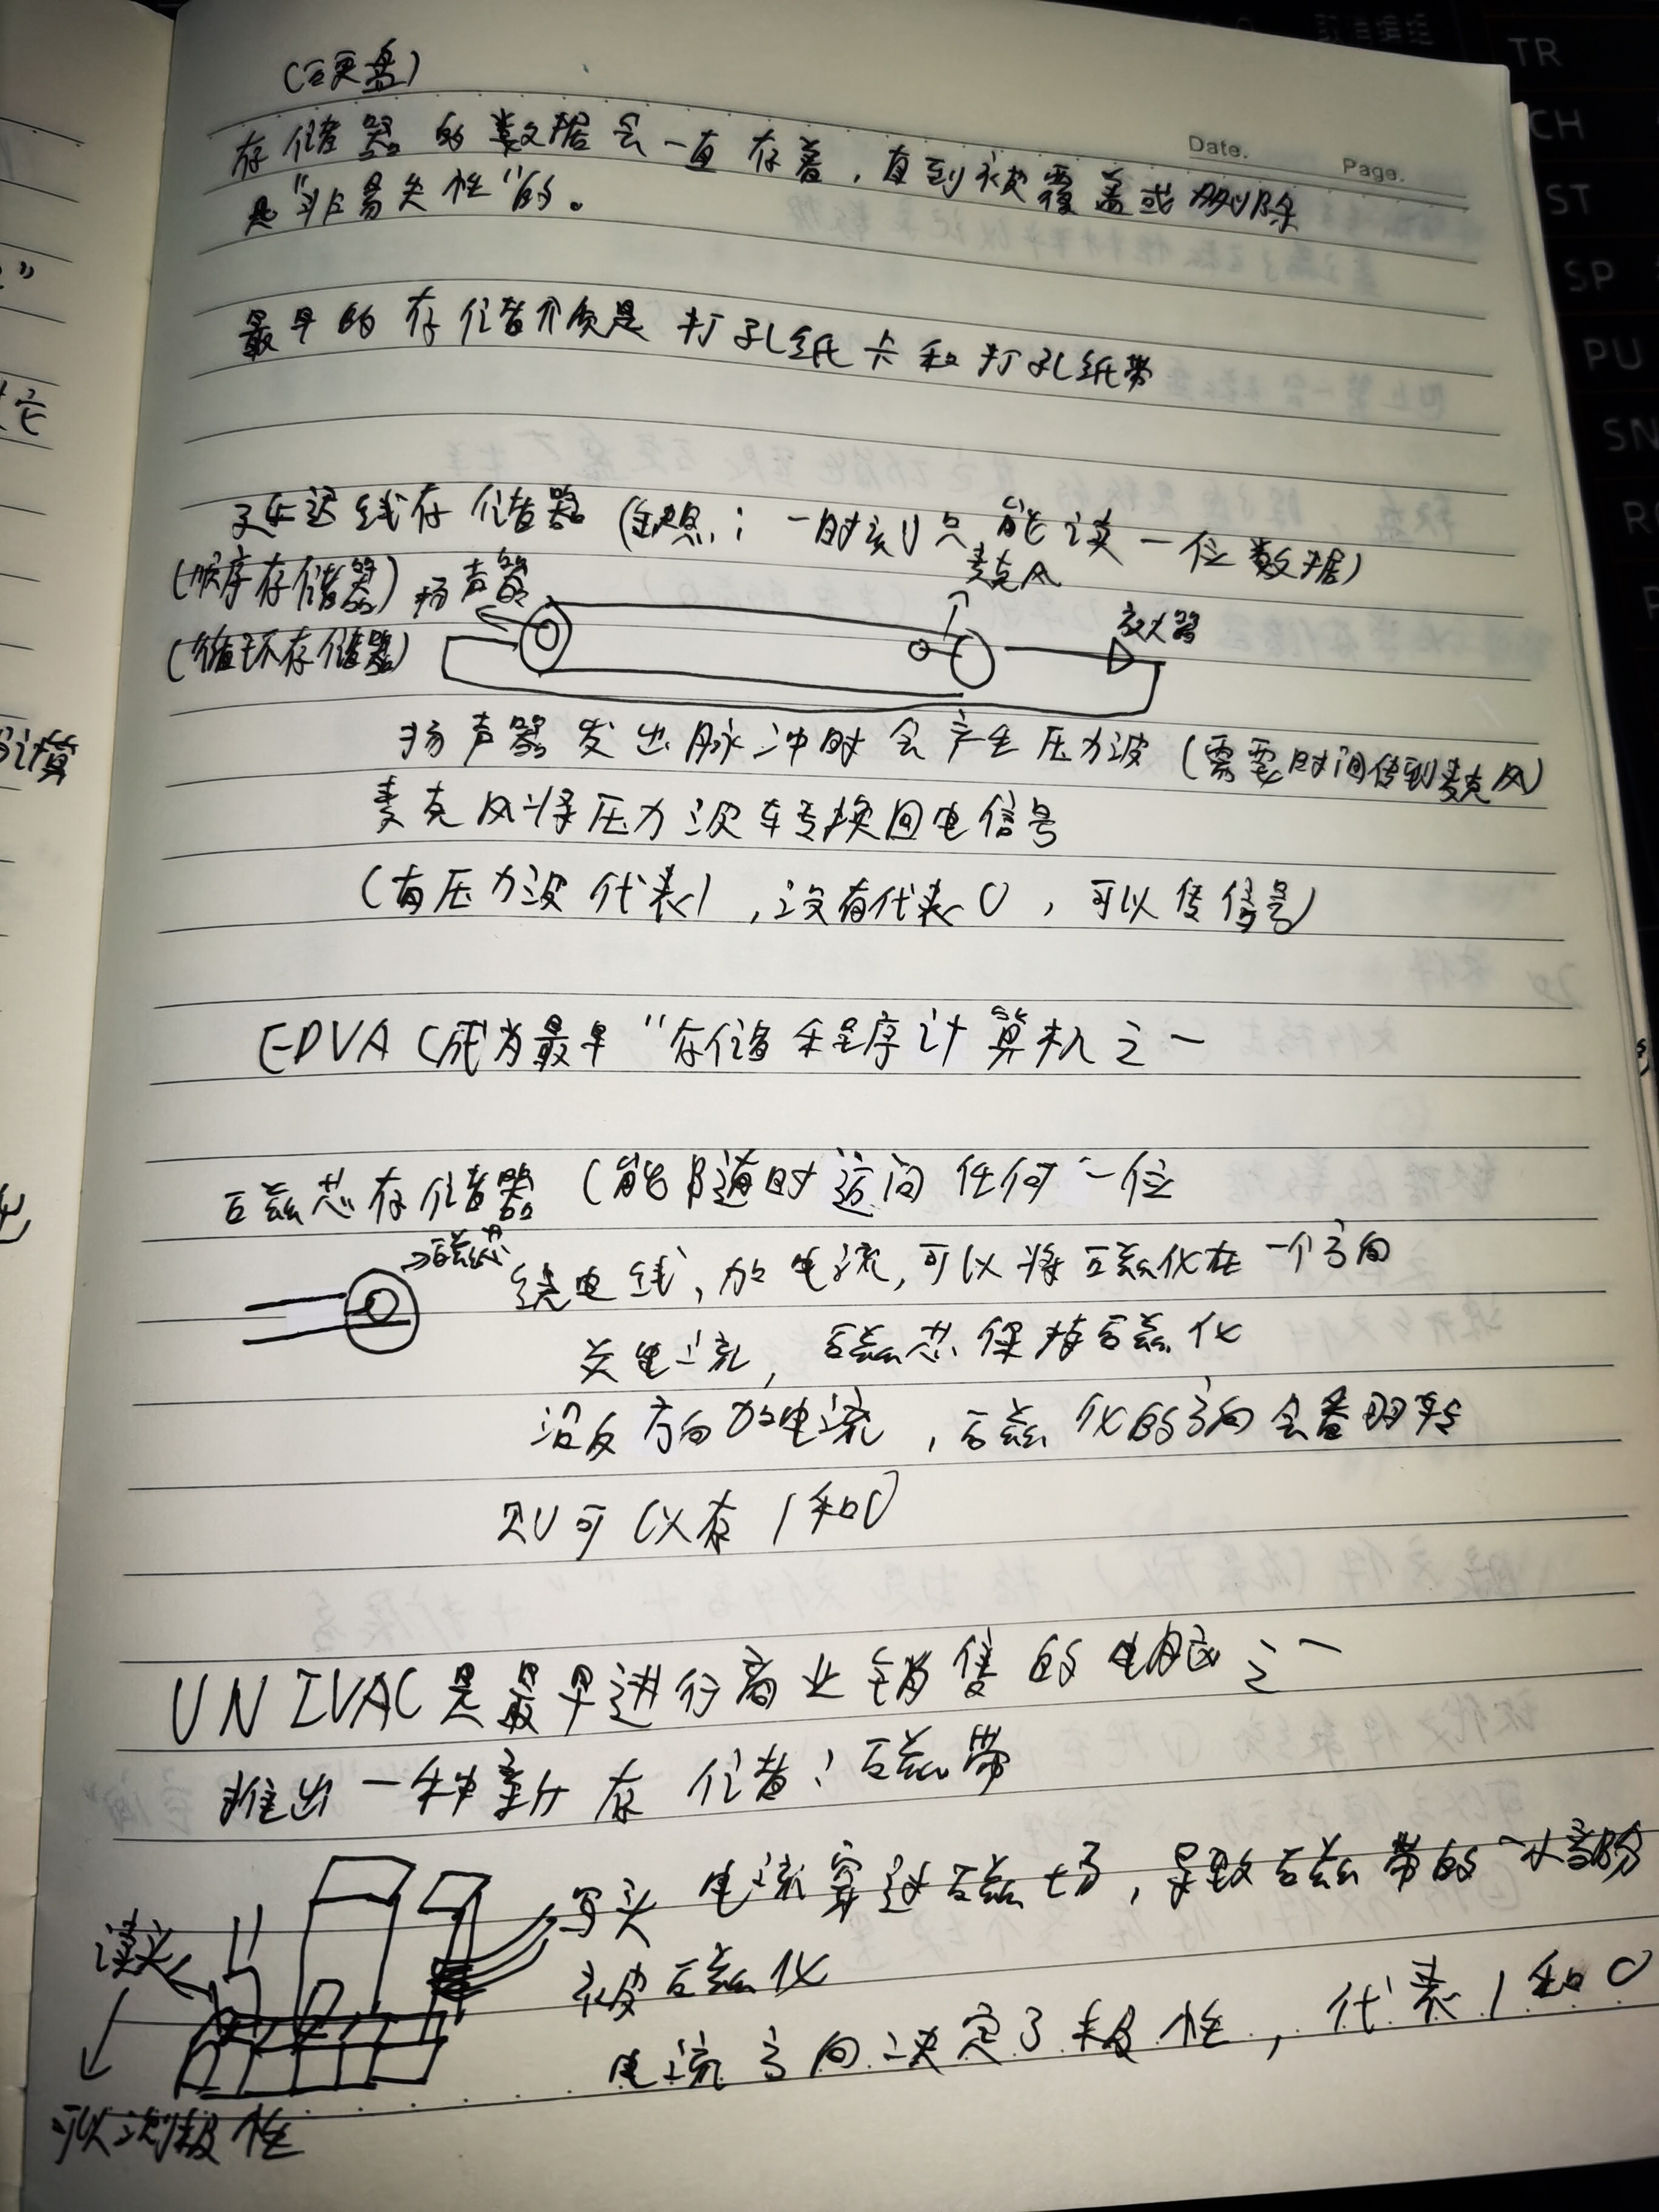 (硬盘)
Date.
Page.
存储器的数据会一直存着，直到被覆盖或删除
是"非易失性"的。
最早的存储介质是打孔纸卡和打孔纸带
延迟线存储器(缺点：一时刻只能读一位数据)
(顺序存储器) 扬声器 麦克风 放大器
(循环存储器)
扬声器发出脉冲时会产生压力波(需要时间传到麦克风)
麦克风将压力波转换回电信号
(有压力波代表1,没有代表0，可以传信号)
EDVAC成为最早"存储程序计算机之一
磁芯存储器(能随时访问任何一位
→磁芯
绕电线,加电流,可以将磁化在一个方向
关电流,磁芯保持磁化
沿反方向加电流，磁化的方向会翻转
则可以存1和0
UNIVAC是最早进行商业销售的电脑之一
推出一种新存储：磁带
写头 电流穿过磁场，导致磁带的一小部分
读头 被磁化
电流方向决定了极性，代表1和0
可以测极性
TR
CH
ST
SP
PU
SN
计算